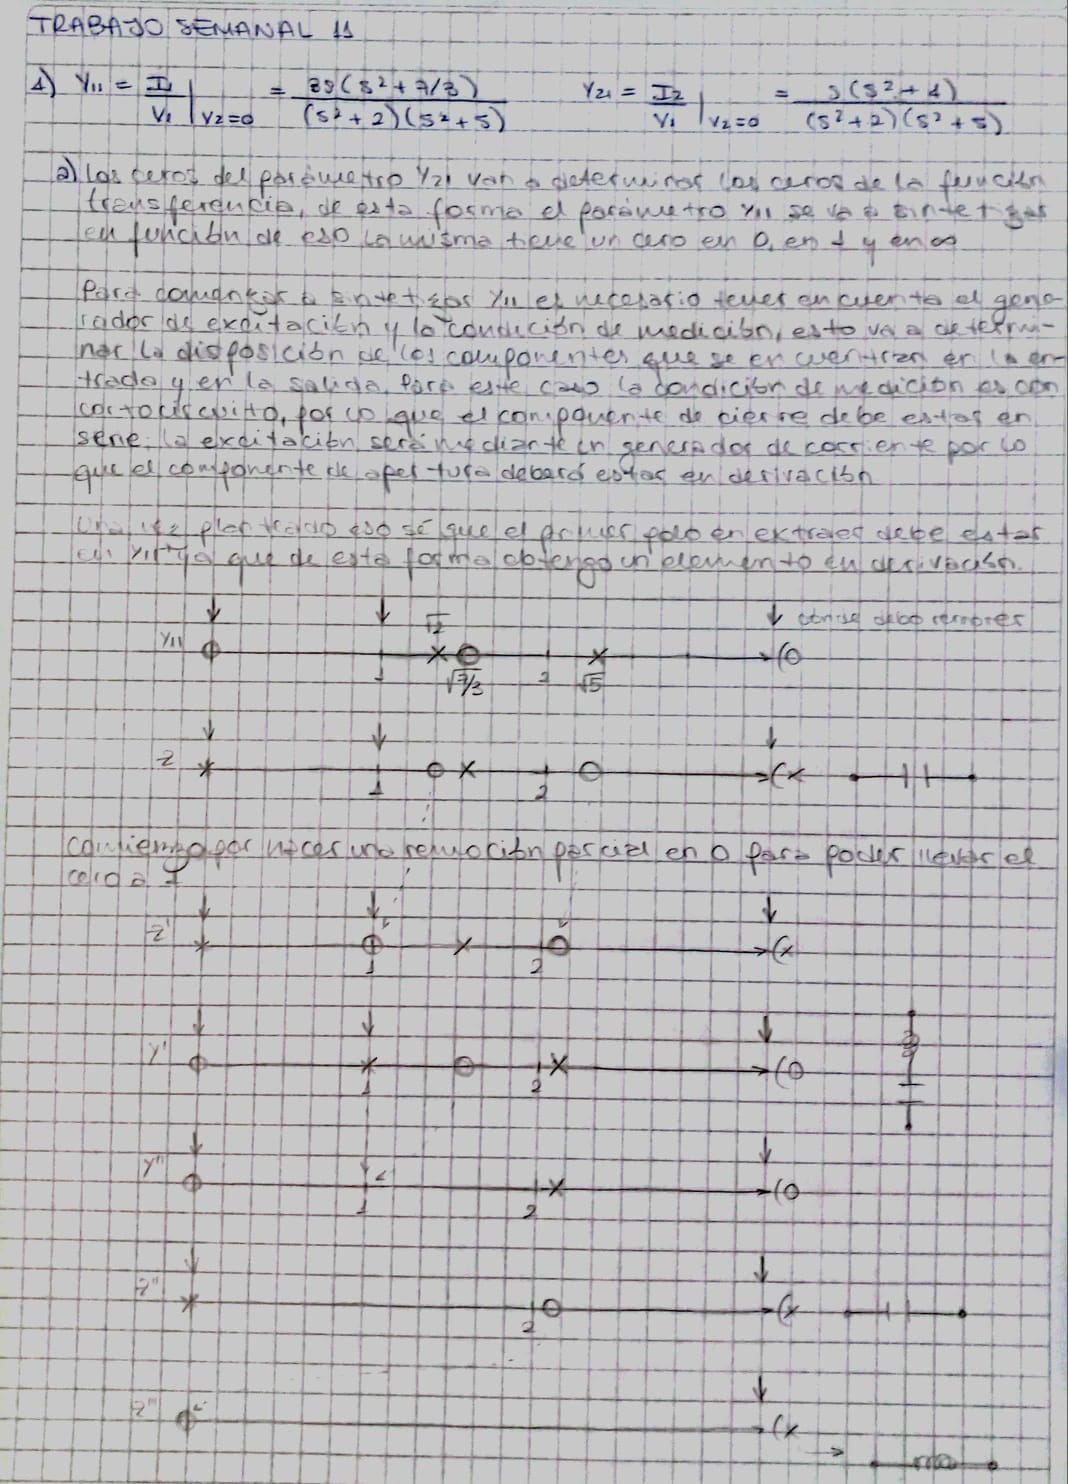 TRABAJO SEMANAL 11
1) Y11 = I1/V1 | V2=0 = 3S(S²+7/3)/((S²+2)(S²+5)) Y21 = I2/V1 | V2=0 = S(S²+1)/((S²+2)(S²+5))
a) Los ceros del parámetro Y21 van a determinar los ceros de la función
transferencia, de esta forma el parámetro Y11 se va a sintetizar
en función de eso. La misma tiene un cero en 0, en 1 y en ∞
Para comenzar a sintetizar Y11 es necesario tener en cuenta el gene-
rador de excitación y la condición de medición, esto va a determi-
nar la disposición de los componentes que se encuentran en la en-
trada y en la salida. Para este caso la condición de medición es con
cortocircuito, por lo que el componente de cierre debe estar en
serie. La excitación será mediante un generador de corriente por lo
que el componente de apertura deberá estar en derivación
Una vez planteado eso sé que el primer polo en extraer debe estar
en Y11 ya que de esta forma obtengo un elemento en derivación.
√2 debo remover
Y11 1 √7/3 2 √5
Z 1 2
Comienzo por hacer una remoción parcial en 0 para poder llevar el
cero a 1
Z' 1 2
Y' 1 2
Y'' 1 2
Z'' 2
Z'''